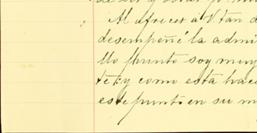 Al ofrecer a Vtan d
desempeñé la admi
llo punto soy muy
te, y como está hace
este punto en su m